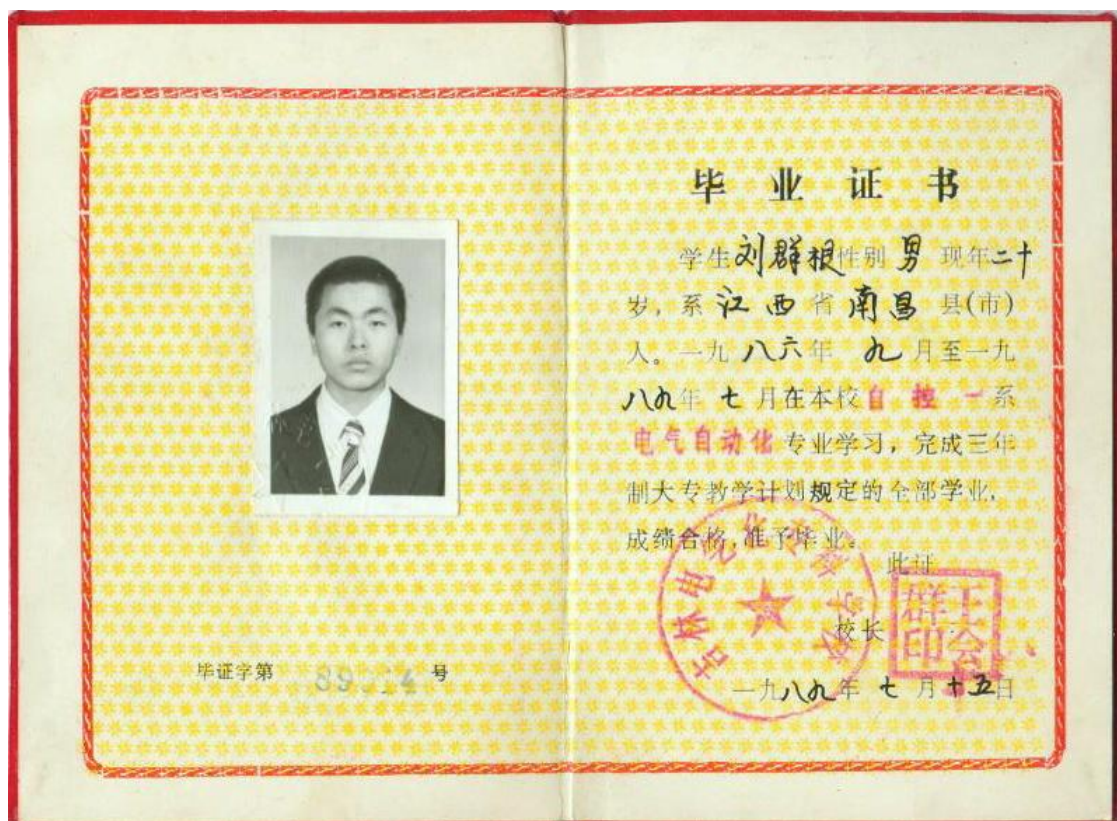 毕证字第 89014 号
毕业证书
学生刘群根性别男 现年二十
岁，系江西省南昌县(市)
人。一九八六年 九月至一九
八九年七月在本校自控一系
电气自动化专业学习，完成三年
制大专教学计划规定的全部学业，
成绩合格，准予毕业。
此证
校长
王会群印
吉林电气化专科学校
一九八九年七月十五日